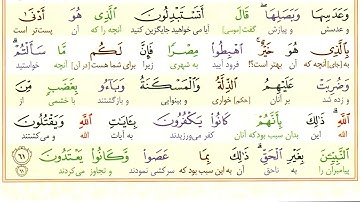 وَعَدَسِهَا وَبَصَلِهَا ۖ قَالَ أَتَسْتَبْدِلُونَ الَّذِي هُوَ أَدْنَىٰ
و عدسش و پیازش گفت (موسی) آیا می خواهید جایگزین کنید آنچه را که آن پست‌تر است
بِالَّذِي هُوَ خَيْرٌ ۚ اهْبِطُوا مِصْرًا فَإِنَّ لَكُمْ مَا سَأَلْتُمْ ۗ
به (جای) آنچه که آن بهتر است؟! فرود آیید به شهری زیرا برای شما هست (در آن) آنچه خواستید
وَضُرِبَتْ عَلَيْهِمُ الذِّلَّةُ وَالْمَسْكَنَةُ وَبَاءُو بِغَضَبٍ مِنَ
و زده شد بر آنان (حکم) خواری و بینوایی و بازگشتند با خشمی از
اللَّهِ ۗ ذَٰلِكَ بِأَنَّهُمْ كَانُوا يَكْفُرُونَ بِآيَاتِ اللَّهِ وَيَقْتُلُونَ
الله این بدان سبب بود که آنان کفر می‌ورزیدند به آیات الله و می‌کشتند
النَّبِيِّينَ بِغَيْرِ الْحَقِّ ۗ ذَٰلِكَ بِمَا عَصَوْا وَكَانُوا يَعْتَدُونَ ۝٦١
پیامبران را به ناحق آن به این سبب بود که سرکشی نمودند و تجاوز می‌کردند